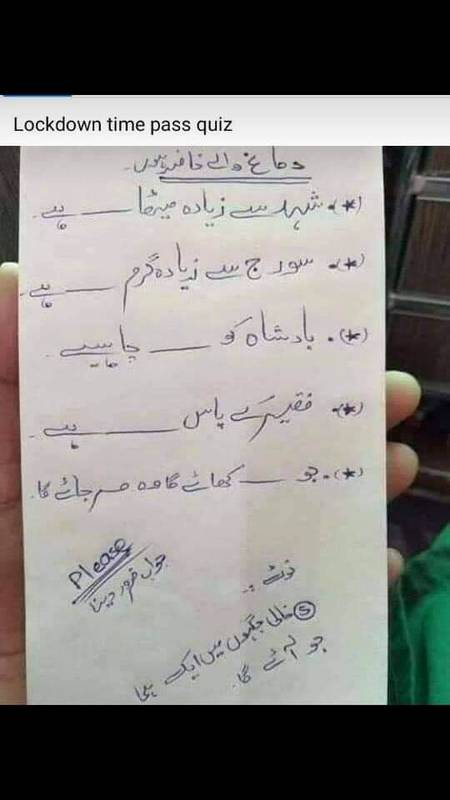 Lockdown time pass quiz
دماغ والے حاضر ہوں۔
(*)۔ شہد سے زیادہ میٹھا ــــــ ہے۔
(*)۔ سورج سے زیادہ گرم ــــــ ہے۔
(*)۔ بادشاہ کو ــــــ چاہیے۔
(*)۔ فقیر کے پاس ــــــ ہے۔
(*)۔ جو ــــــ کھائے گا وہ مر جائے گا۔
Please
جواب ضرور دینا
نوٹ :۔
⑤ خالی جگہوں میں ایک ہی
جو آئے گا۔